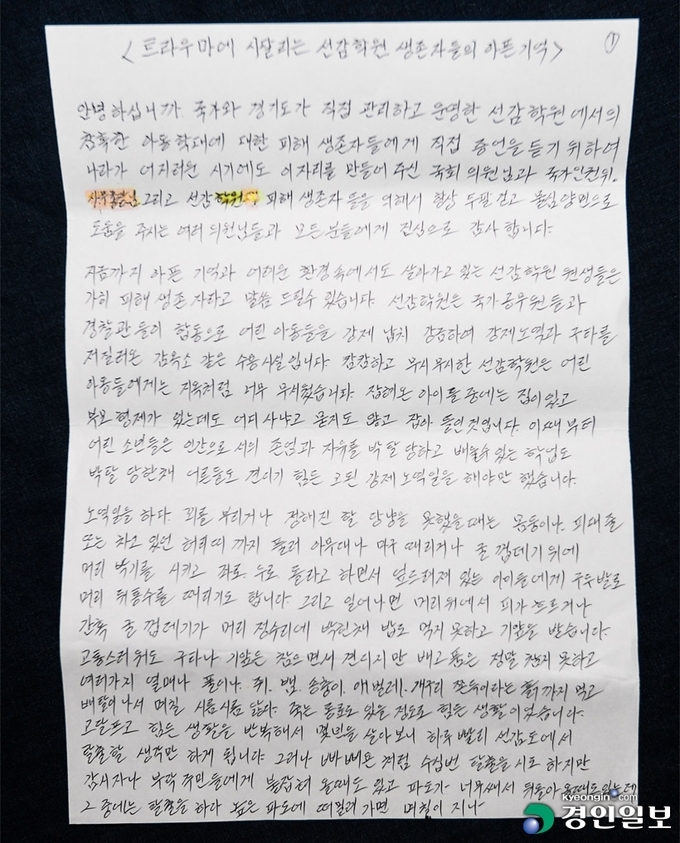 <트라우마에 시달리는 선감학원 생존자들의 아픈기억> ①
안녕하십니까. 국가와 경기도가 직접 관리하고 운영한 선감학원에서의
참혹한 아동학대에 대한 피해 생존자들에게 직접 증언을 듣기 위하여
나라가 어지러운 시기에도 이자리를 만들어 주신 국회 의원님과 국가인권위.
그리고 선감학원 피해 생존자들을 위해서 항상 두팔 걷고 물심양면으로
도움을 주시는 여러 의원님들과 모든 분들에게 진심으로 감사 합니다.
지금까지 아픈 기억과 어려운 환경속에서도 살아가고 있는 선감학원 원생들은
가히 피해 생존자라고 말씀 드릴수 있습니다. 선감학원은 국가공무원들과
경찰관들이 합동으로 어린 아동들을 강제 납치 감금하여 강제노역과 구타를
저질러온 감옥소 같은 수용시설입니다. 캄캄하고 무시무시한 선감학원은 어린
아동들에게는 지옥처럼 너무 무서웠습니다. 잡혀온 아이들 중에는 집이있고
부모 형제가 있는데도 어디 사냐고 묻지도 않고 잡아 들인것입니다. 이때부터
어린 소년들은 인간으로 서의 존엄과 자유를 박탈 당하고 배울수 있는 학업도
박탈 당한채 어른들도 견디기 힘든 고된 강제 노역일을 해야만 했습니다.
노역일을 하다. 꾀를 부리거나 정해진 할당량을 못했을때는 몽둥이나. 피대줄
또는 차고 있던 허리띠 까지 풀러 아무데나 마구 때리거나 굴 껍데기 위에
머리 박기를 시키고 좌로. 우로 돌라고 하면서 엎드려져 있는 아이들에게 구두발로
머리 뒤통수를 때리기도 합니다. 그리고 일어나면 머리위에서 피가 흐르거나
간혹 굴 껍데기가 머리 정수리에 박힌채 밥도 먹지 못하고 기압을 받습니다.
고통스러워도 구타나 기압은 참으면서 견디지만 배고픔은 정말 참지 못하고
여러가지 열매나 풀이나. 쥐. 뱀. 송충이. 애벌레. 개구리 쫀득이라는 흙까지 먹고
배탈이나서 며칠 시름시름 앓다. 죽는 동료도 있을 정도로 힘든 생활이었습니다.
고달프고 힘든 생활을 반복해서 몇년을 살아보니 하루 빨리 선감도에서
탈출할 생각만 하게 됩니다. 그러나 빠삐용 처럼 수십번 탈출을 시도 하지만
감시자나 부락 주민들에게 붙잡혀 올때도 있고 파도가 너무쎄서 뒤돌아 올때도있는데
그 중에는 탈출을 하다 높은 파도에 떠밀려가면 며칠이 지나
kyeongin.com
경인일보